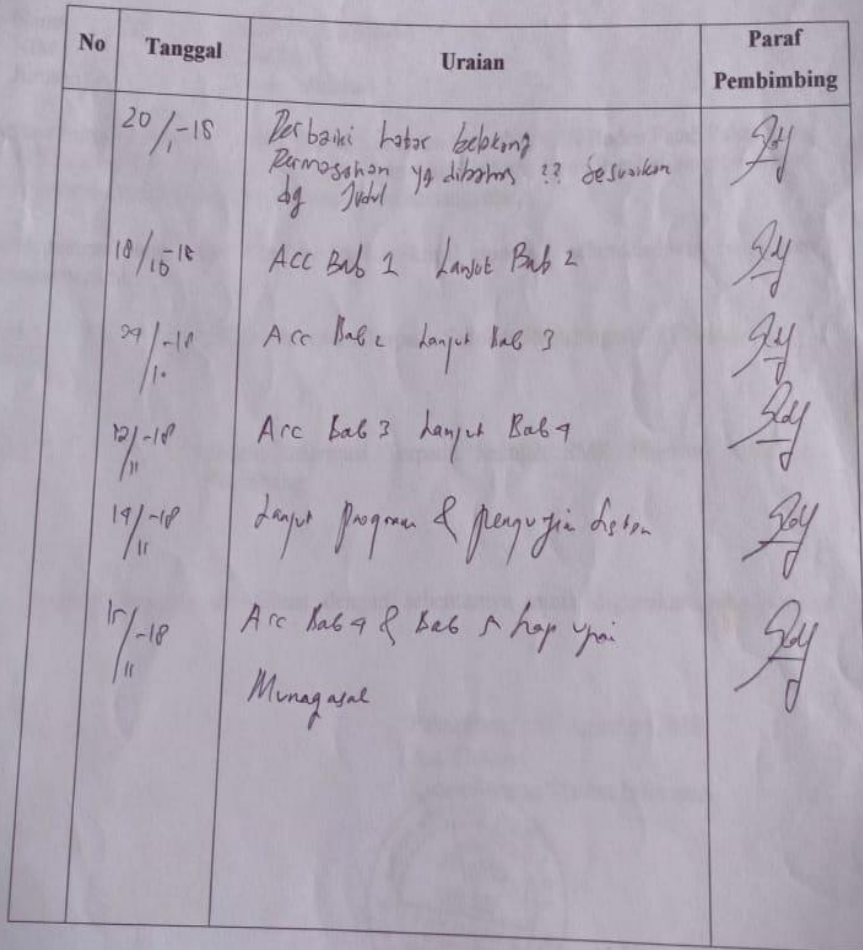 No Tanggal Uraian Paraf Pembimbing
20/1-18 Perbaiki Latar belakang
Permasahan yg dibahas ?? Sesuaikan
dg Judul
18/10-18 Acc Bab 1 Lanjut Bab 2
29/10-18 Acc Bab 2 Lanjut Bab 3
12/11-18 Acc Bab 3 Lanjut Bab 4
14/11-18 Lanjut Program & pengujian
15/11-18 Acc Bab 4 & Bab 5 hap
Munaqasah